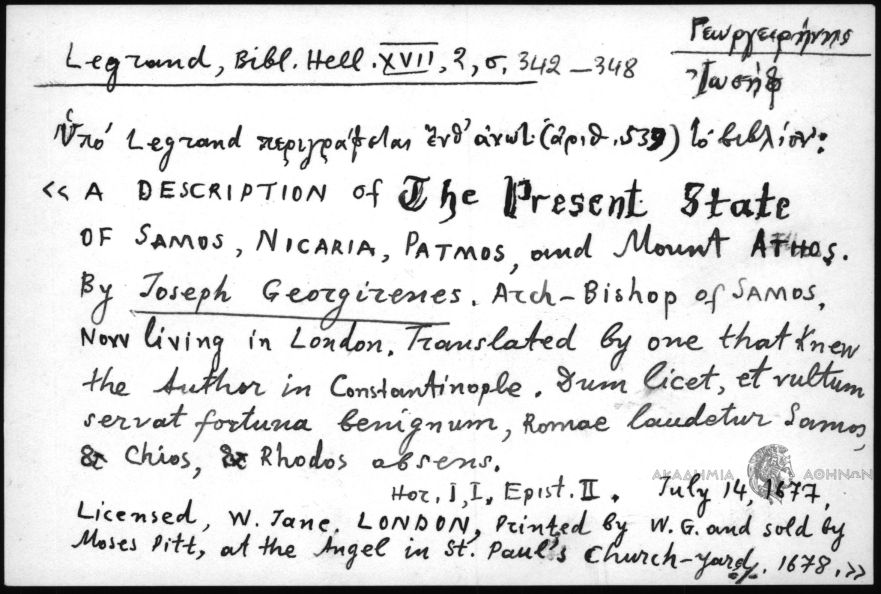 Γεωργειρήνης
Ἰωσήφ
Legrand, Bibl. Hell. XVII, 2, σ. 342–348
Ὑπό Legrand περιγράφεται ἐνθ' ἀνωτ. (ἀριθ. 539) τό βιβλίον:
« A DESCRIPTION of The Present State
OF SAMOS, NICARIA, PATMOS, and Mount ATHOS.
By Joseph Georgirenes. Arch-Bishop of SAMOS,
Now living in London. Translated by one that knew
the Author in Constantinople. Dum licet, et vultum
servat fortuna benignum, Romae laudetur Samos,
& Chios, & Rhodos absens.
Hor. I, I, Epist. II. July 14, 1677,
Licensed, W. Jane. LONDON, Printed by W. G. and sold by
Moses Pitt, at the Angel in St. Paul's Church-yard, 1678. »
ΑΚΑΔΗΜΙΑ ΑΘΗΝΩΝ